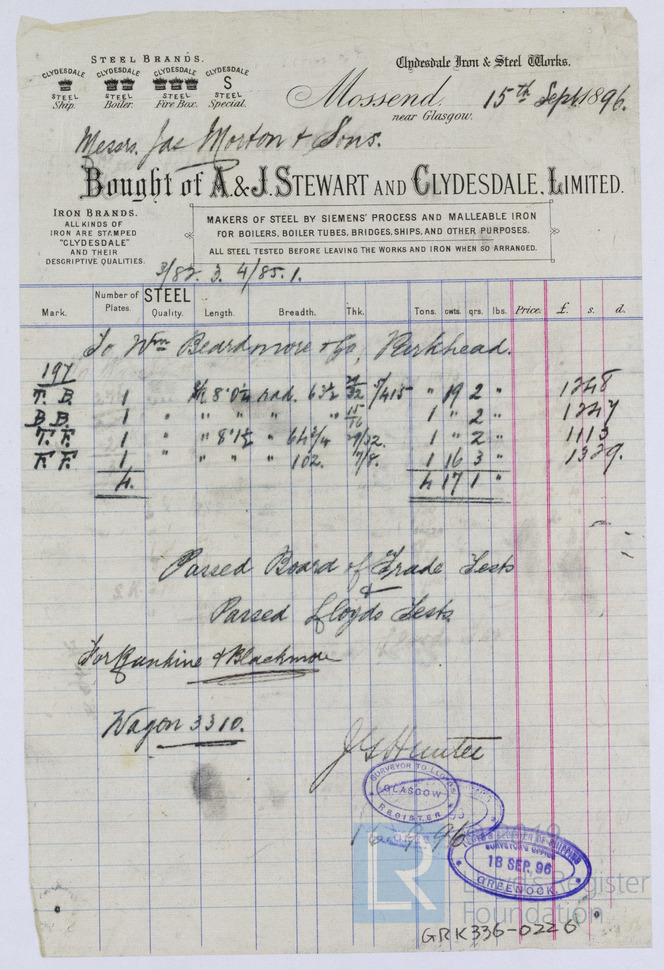 STEEL BRANDS.
CLYDESDALE CLYDESDALE CLYDESDALE CLYDESDALE
S
STEEL STEEL STEEL STEEL
Ship. Boiler. Fire Box. Special.
Clydesdale Iron & Steel Works.
Mossend. 15th Sept. 1896.
near Glasgow.
Messrs. Jas Morton & Sons.
Bought of A. & J. STEWART AND CLYDESDALE, LIMITED.
IRON BRANDS.
ALL KINDS OF
IRON ARE STAMPED
"CLYDESDALE"
AND THEIR
DESCRIPTIVE QUALITIES.
MAKERS OF STEEL BY SIEMENS' PROCESS AND MALLEABLE IRON
FOR BOILERS, BOILER TUBES, BRIDGES, SHIPS, AND OTHER PURPOSES.
ALL STEEL TESTED BEFORE LEAVING THE WORKS AND IRON WHEN SO ARRANGED.
3/82. 3. 4/85. 1.
Mark. Number of Plates. STEEL Quality. Length. Breadth. Thk. Tons. cwts. qrs. lbs. Price. £. s. d.
To Wm Beardmore & Co, Parkhead.
197
T. B. 1 8'0½ rad. 6 3½ /32 5/415 " 19 2 " 1248
B. B. 1 " " " " " 15/16 1 " 2 " 1247
T. F. 1 " " 8'1½ " 64 3/4 29/32. 1 " 2 " 1113
F. F. 1 " " " " 102. 7/8. 1 16 3 " 1329.
4. 4 17 1 "
Passed Board of Trade Tests
&
Passed Lloyds Tests
For Rankine & Blackmore
Wagon 3310.
J G Hunter
SURVEYOR TO LLOYD'S
GLASGOW
REGISTER
96
LLOYD'S REGISTER OF SHIPPING
SURVEYOR'S OFFICE
18 SEP. 96
GREENOCK.
LR
Lloyd's Register
Foundation
GRK336-0226